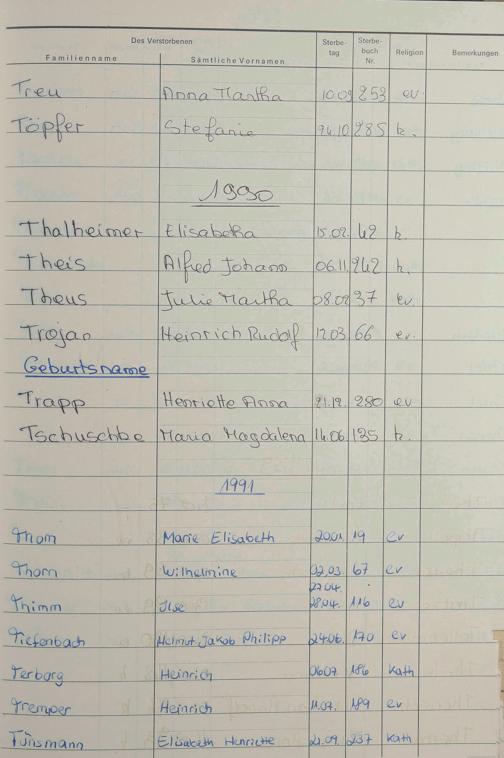 Des Verstorbenen Sterbe- Sterbe-
Familienname Sämtliche Vornamen tag buch Nr. Religion Bemerkungen
Treu Anna Martha 10.09 253 ev
Töpfer Stefanie 24.10 285 k.
1990
Thalheimer Elisabetha 15.02. 42 k.
Theis Alfred Johann 06.11. 242 k.
Theus Julie Martha 08.02 37 ev.
Trojan Heinrich Rudolf 12.03 66 ev.
Geburtsname
Trapp Henriette Anna 21.12. 280 ev
Tschuschbe Maria Magdalena 14.06. 135 k.
1991
Thom Marie Elisabeth 20.01. 19 ev
Thorn Wilhelmine 02.03. 67 ev
27.04.
Thimm Ilse 28.04. 116 ev
Tiefenbach Helmut Jakob Philipp 24.06. 170 ev
Terborg Heinrich 06.07 186 kath
Tremper Heinrich 11.07. 189 ev
Tünsmann Elisabeth Henriette 21.09. 237 kath